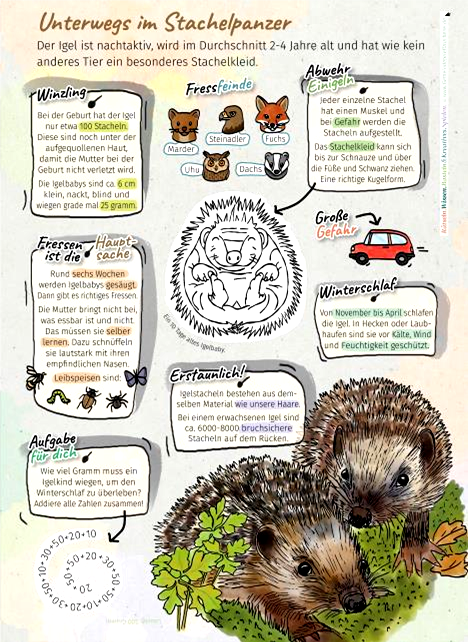 Unterwegs im Stachelpanzer
Der Igel ist nachtaktiv, wird im Durchschnitt 2-4 Jahre alt und hat wie kein
anderes Tier ein besonderes Stachelkleid.
Winzling
Bei der Geburt hat der Igel
nur etwa 100 Stacheln.
Diese sind noch unter der
aufgequollenen Haut,
damit die Mutter bei der
Geburt nicht verletzt wird.
Die Igelbabys sind ca. 6 cm
klein, nackt, blind und
wiegen grade mal 25 gramm.
Fressfeinde
Marder
Steinadler
Fuchs
Uhu
Dachs
Abwehr
Einigeln
Jeder einzelne Stachel
hat einen Muskel und
bei Gefahr werden die
Stacheln aufgestellt.
Das Stachelkleid kann sich
bis zur Schnauze und über
die Füße und Schwanz ziehen.
Eine richtige Kugelform.
Große
Gefahr
Fressen
ist die
Haupt-
sache
Rund sechs Wochen
werden Igelbabys gesäugt.
Dann gibt es richtiges Fressen.
Die Mutter bringt nicht bei,
was essbar ist und nicht.
Das müssen sie selber
lernen. Dazu schnüffeln
sie lautstark mit ihren
empfindlichen Nasen.
Leibspeisen sind:
Ein 10 Tage altes Igelbaby.
Winterschlaf
Von November bis April schlafen
die Igel. In Hecken oder Laub-
haufen sind sie vor Kälte, Wind
und Feuchtigkeit geschützt.
Erstaunlich!
Igelstacheln bestehen aus dem-
selben Material wie unsere Haare.
Bei einem erwachsenen Igel sind
ca. 6000-8000 bruchsichere
Stacheln auf dem Rücken.
Aufgabe
für dich
Wie viel Gramm muss ein
Igelkind wiegen, um den
Winterschlaf zu überleben?
Addiere alle Zahlen zusammen!